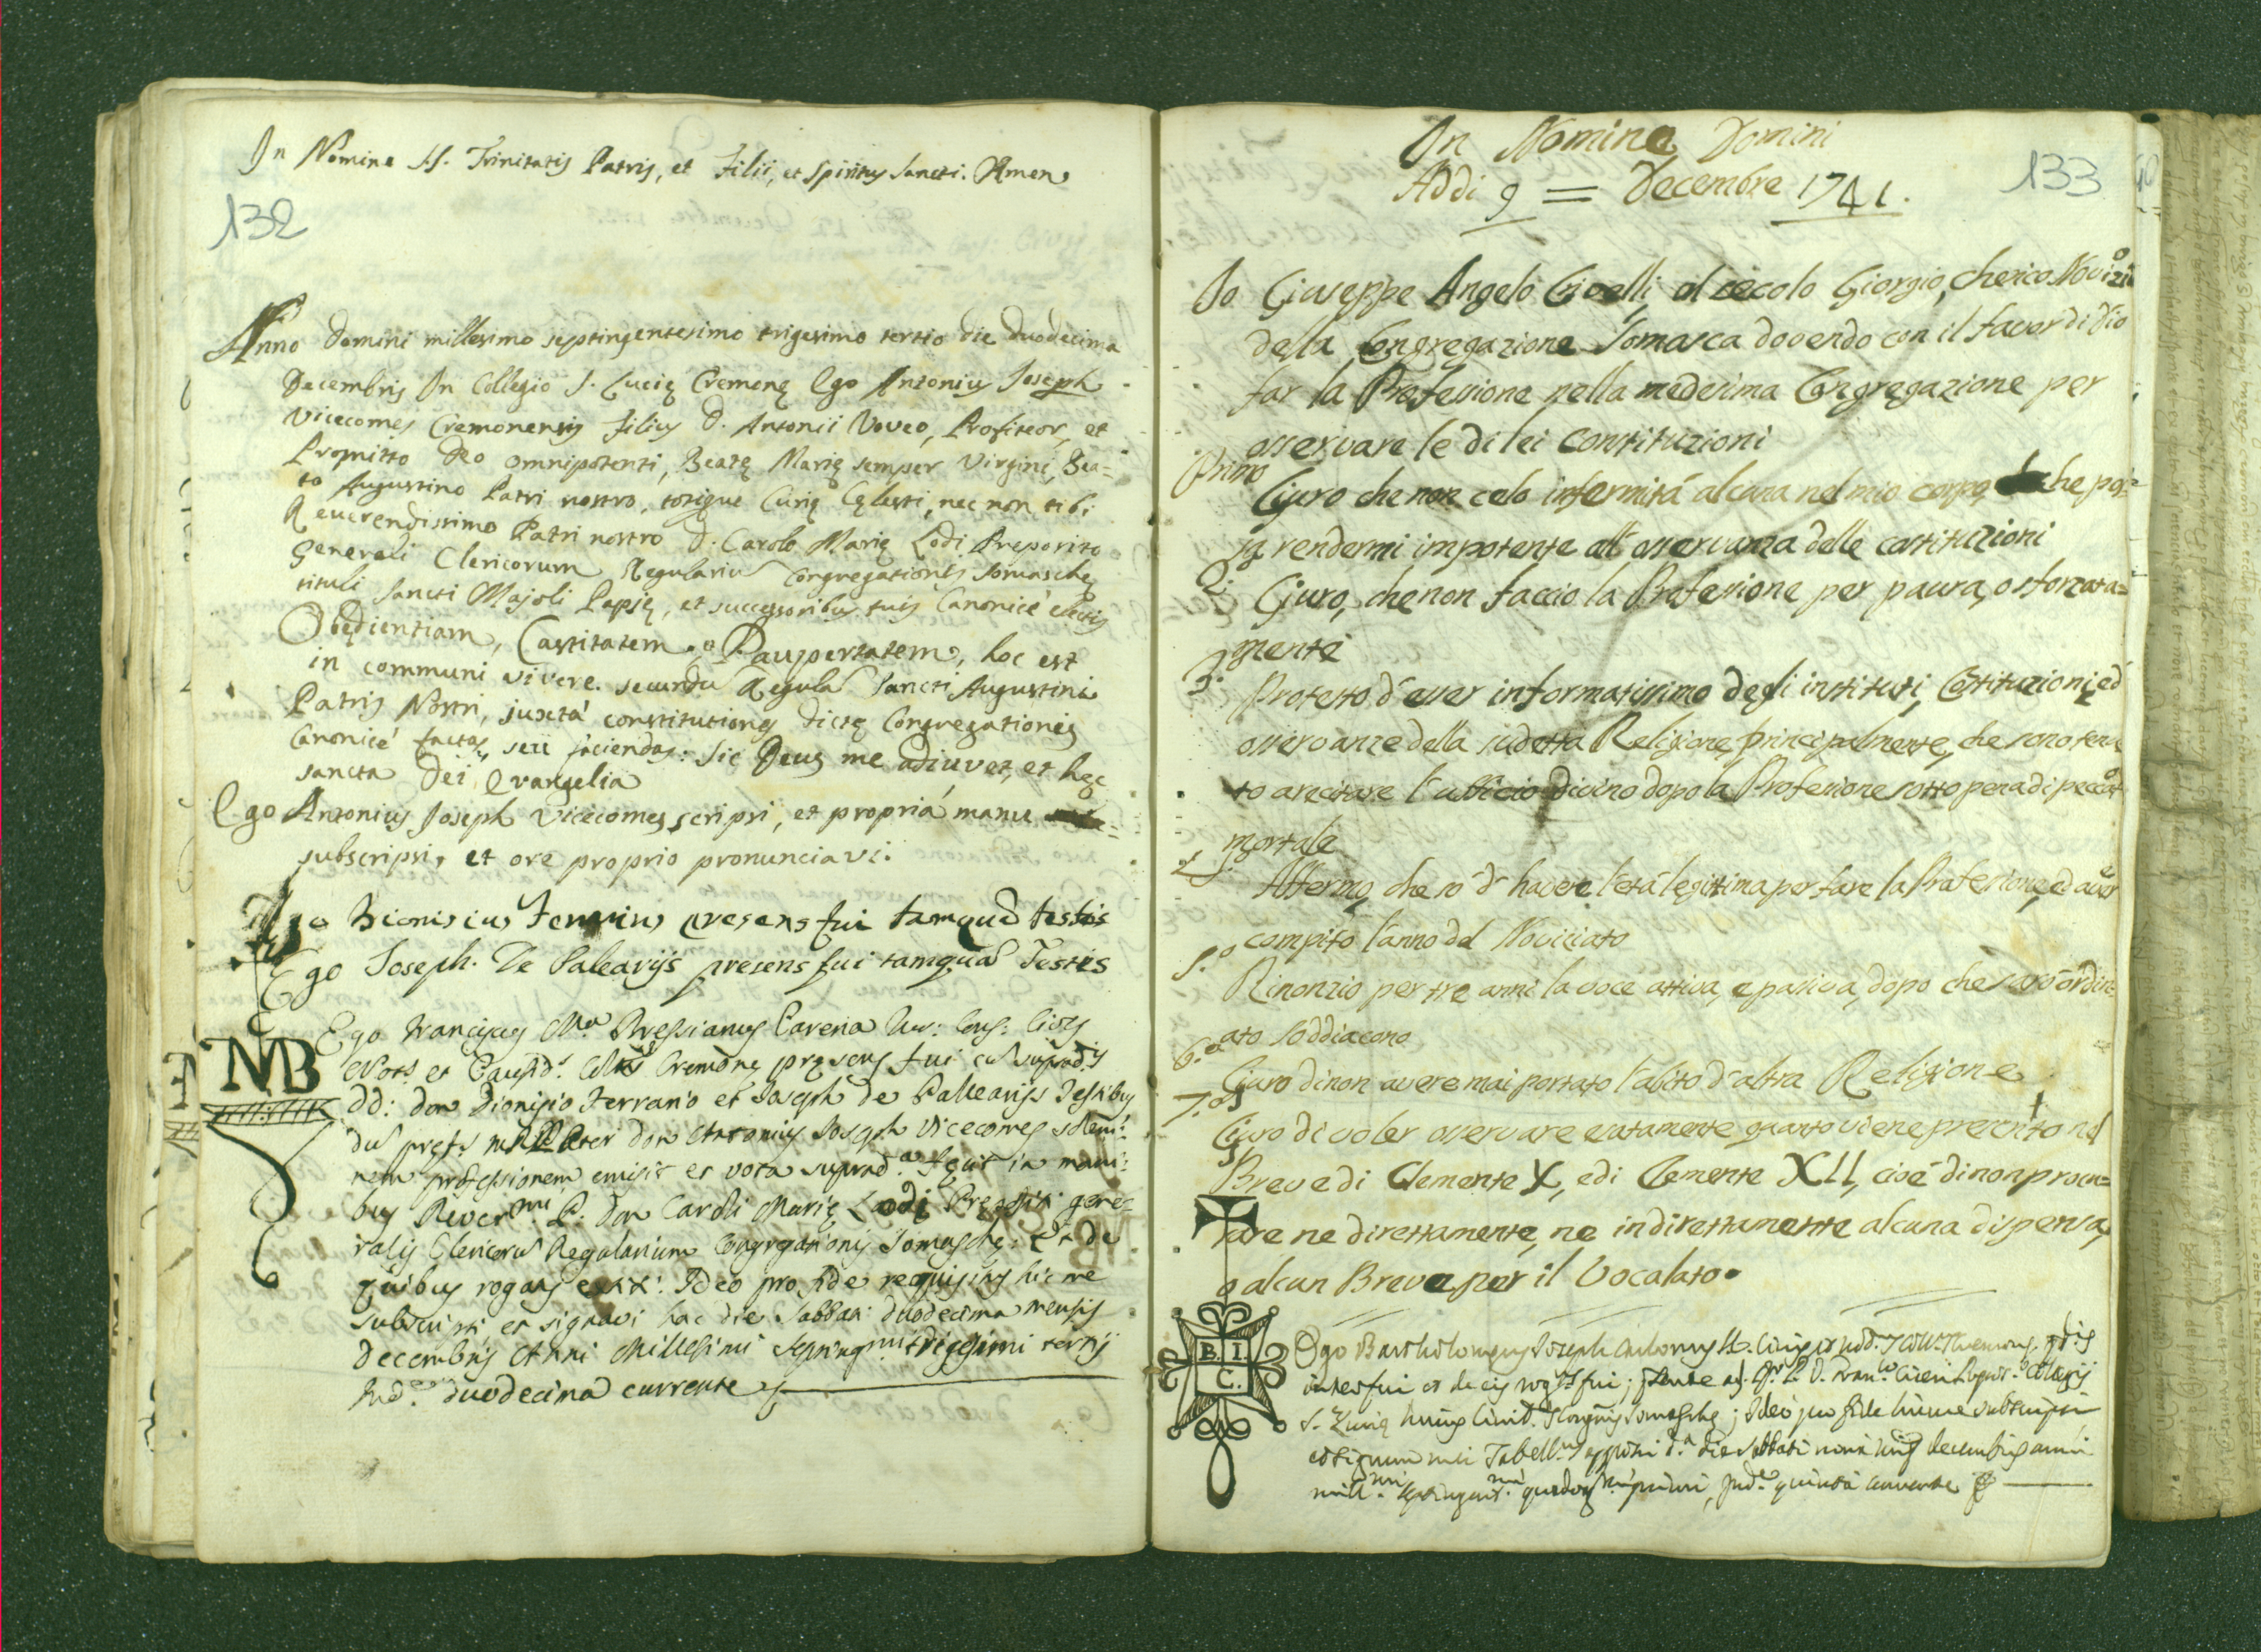 In Nomine SS. Trinitatis Patris, et Filii, et Spiritus Sancti. Amen
132
Anno Domini millesimo septingentesimo trigesimo tertio die duodecima
Decembris In Collegio S. Lucię Cremonę Ego Antonius Joseph
Vicecomes Cremonensis filius D. Antonii Voveo, Profiteor, et
Promitto Deo omnipotenti, Beatę Marię semper Virgini, Bea-
to Augustino Patri nostro, totique Curię Cęlesti, nec non tibi
Reverendissimo Patri nostro D. Carolo Marię Lodi Preposito
Generali Clericorum Regulariu Congregationis Somaschę
tituli Sancti Majoli Papię, et successoribus tuis Canonicé electis
Obędientiam, Castitatem, et Paupertatem, hoc est
in communi vivere secundu Regula Sancti Augustini
Patris Nostri, juxtá constitutiones dictę Congregationis
Canonicé factas, seu faciendas: Sic Deus me adiuvet, et hęc
sancta Dei Evangelia
Ego Antonius Joseph Vicecomes scripsi, et propriá manu
subscripsi, et ore proprio pronunciavi.
Ego Dionisius presens fui tamqua testis
Ego Joseph De Palearijs presens fui tamqua Testis
Ego Franciscus Bressianus Carena
Not. et Causid. Cremonę pręsens fui cu suprad.is
DD: Don Dionisio Ferrario et Joseph de Pallearijs Testibus
du Don Antonius Joseph Vicecomes solem-
nem professionem emisit et vota suprad.a fecit in mani-
bus Rever.mi P. Don Caroli Marię Lodi Prępositi gene-
ralis Clericoru Regularium Congregationis Somaschę: Et de
quibus rogatus extiti: Ideo pro fide requisitus hic me
subscripsi, et signavi hac die Sabbati duodecima mensis
Decembris Anni Millesimi Septing.mi trigesimi tertij
Ind.e duodecima currente
NB
In Nomine Domini
Addi 9 = Decembre 1741.
133
Io Giuseppe Angelo Crivelli al secolo Giorgio, cherico Novizio
della Congregazione Somasca dovendo con il favor di Dio
far la Professione nella medesima Congregazione per
osservare le di lei Constituzioni
Primo
Giuro che non celo infermitá alcuna nel mio corpo che pos-
sa rendermi impotente all'osservanza delle costituzioni
2.
Giuro, che non faccio la Professione per paura, o sforzata-
mente
3.
Protesto d'esser informatissimo degli instituti, Costituzioni, ed
osservanze della sudetta Religione, principalmente, che sono tenu
to a recitare l'ufficio divino dopo la Professione sotto pena di peccato
mortale
4.
Affermo, che só d'havere l'etá legittima per fare la Professione, ed aver
compito l'anno del Noviciato
5.o
Rinonzio per tre anni la voce attiva, e passiva, dopo che saró ordin-
ato Soddiacono
6.o
Giuro di non avere mai portato l'abito d'altra Religione
7.o
Giuro di voler osservare esatamente quanto viene prescritto nel
Breve di Clemente X, e di Clemente XII, cioé di non procu-
rare ne direttamente, ne indirettamente alcuna dispensa,
o alcun Breve per il Vocalato.
B. I.
C.
Ego Bartholomeus Joseph Antonius
interfui et de eis rog.s fui;
S. Lucię huius Civit. Somaschę; Ideo pro fide hic me subscripsi
et signum mei Tabell.s apposui d.a die Sabbati nona decembris anni
mill.mi Septingent.mi primi, Ind.e quinta currente